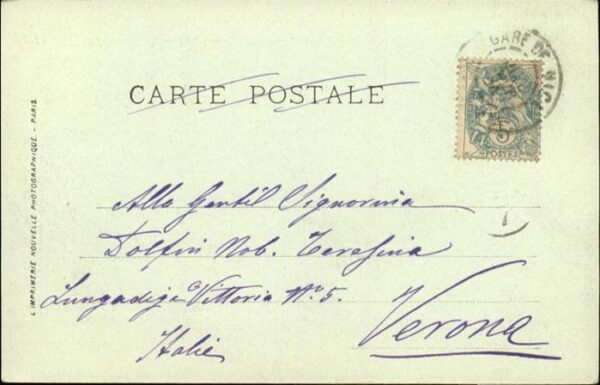 GARE DE NICE
CARTE POSTALE
5
POSTES
L'IMPRIMERIE NOUVELLE PHOTOGRAPHIQUE. - PARIS.
Alla Gentil Signorina
Dolfin Nob. Teresina
Lungadige Vittoria N° 5.
Verona
Italie